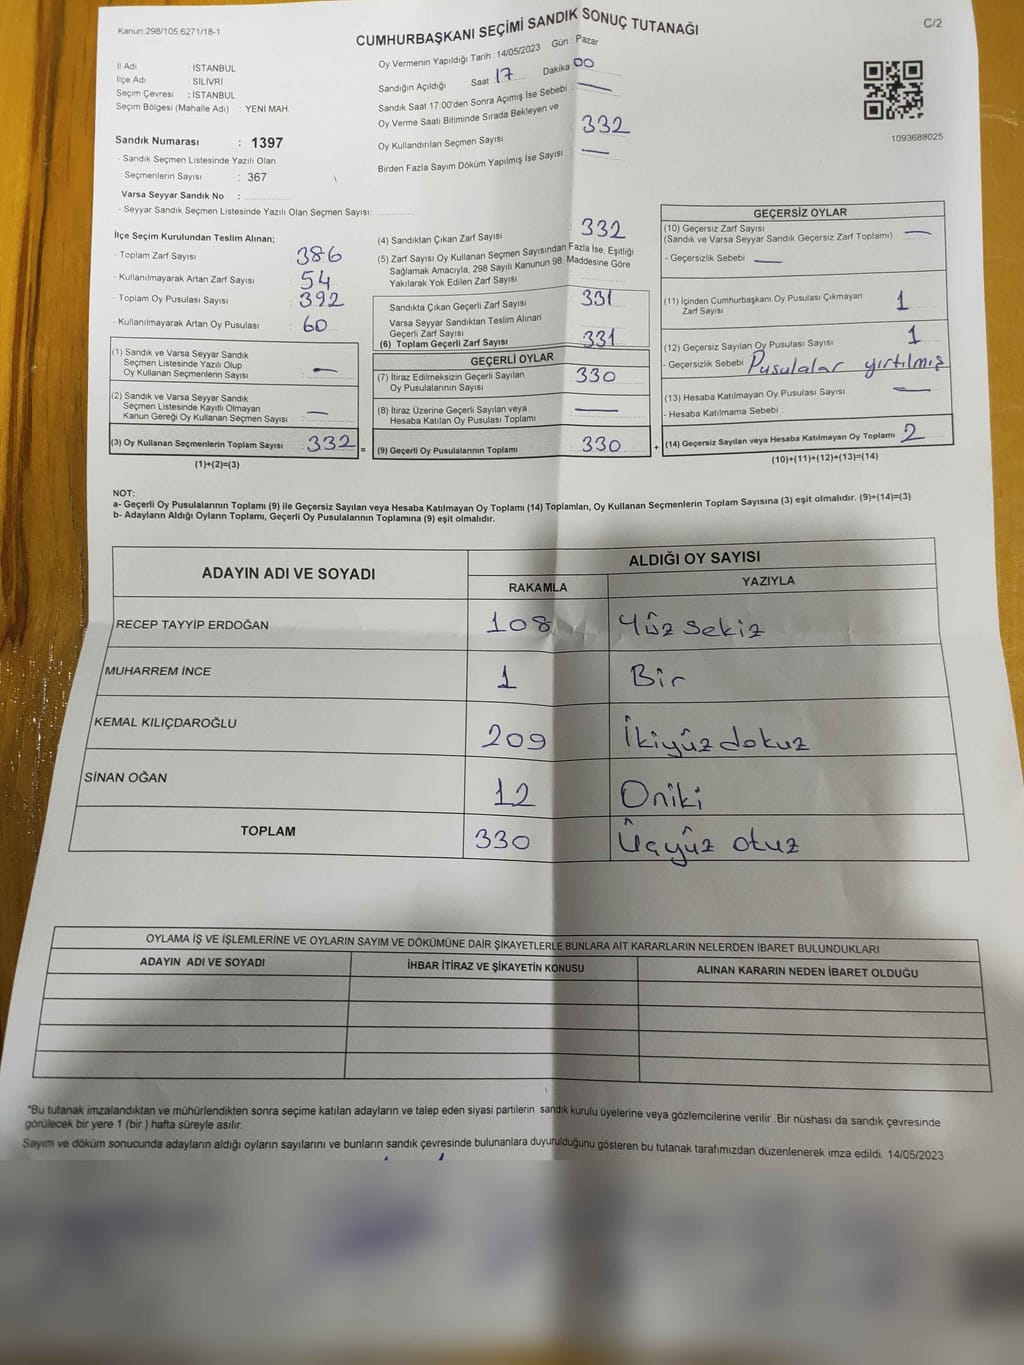 Kanun:298/105,6271/18-1
CUMHURBAŞKANI SEÇİMİ SANDIK SONUÇ TUTANAĞI
C/2
İl Adı : İSTANBUL
İlçe Adı : SİLİVRİ
Seçim Çevresi : İSTANBUL
Seçim Bölgesi (Mahalle Adı) : YENİ MAH.
Sandık Numarası : 1397
- Sandık Seçmen Listesinde Yazılı Olan
Seçmenlerin Sayısı : 367
Varsa Seyyar Sandık No :
- Seyyar Sandık Seçmen Listesinde Yazılı Olan Seçmen Sayısı:
Oy Vermenin Yapıldığı Tarih : 14/05/2023 Gün : Pazar
Sandığın Açıldığı Saat 17 Dakika 00
Sandık Saat 17.00'den Sonra Açımış İse Sebebi : —
Oy Verme Saati Bitiminde Sırada Bekleyen ve
Oy Kullandırılan Seçmen Sayısı : 332
Birden Fazla Sayım Döküm Yapılmış İse Sayısı : —
1093688025
İlçe Seçim Kurulundan Teslim Alınan;
- Toplam Zarf Sayısı : 386
- Kullanılmayarak Artan Zarf Sayısı : 54
- Toplam Oy Pusulası Sayısı : 392
- Kullanılmayarak Artan Oy Pusulası : 60
(1) Sandık ve Varsa Seyyar Sandık
Seçmen Listesinde Yazılı Olup
Oy Kullanan Seçmenlerin Sayısı : —
(2) Sandık ve Varsa Seyyar Sandık
Seçmen Listesinde Kayıtlı Olmayan
Kanun Gereği Oy Kullanan Seçmen Sayısı : —
(3) Oy Kullanan Seçmenlerin Toplam Sayısı : 332 =
(1)+(2)=(3)
(4) Sandıktan Çıkan Zarf Sayısı : 332
(5) Zarf Sayısı Oy Kullanan Seçmen Sayısından Fazla İse, Eşitliği
Sağlamak Amacıyla; 298 Sayılı Kanunun 98. Maddesine Göre
Yakılarak Yok Edilen Zarf Sayısı :
Sandıkta Çıkan Geçerli Zarf Sayısı : 331
Varsa Seyyar Sandıktan Teslim Alınan
Geçerli Zarf Sayısı
(6) Toplam Geçerli Zarf Sayısı : 331
GEÇERLİ OYLAR
(7) İtiraz Edilmeksizin Geçerli Sayılan
Oy Pusulalarının Sayısı : 330
(8) İtiraz Üzerine Geçerli Sayılan veya
Hesaba Katılan Oy Pusulası Toplamı : —
(9) Geçerli Oy Pusulalarının Toplamı : 330 +
GEÇERSİZ OYLAR
(10) Geçersiz Zarf Sayısı
(Sandık ve Varsa Seyyar Sandık Geçersiz Zarf Toplamı) : —
- Geçersizlik Sebebi : —
(11) İçinden Cumhurbaşkanı Oy Pusulası Çıkmayan
Zarf Sayısı : 1
(12) Geçersiz Sayılan Oy Pusulası Sayısı : 1
- Geçersizlik Sebebi : Pusulalar yırtılmış
(13) Hesaba Katılmayan Oy Pusulası Sayısı : —
- Hesaba Katılmama Sebebi :
(14) Geçersiz Sayılan veya Hesaba Katılmayan Oy Toplamı : 2
(10)+(11)+(12)+(13)=(14)
NOT:
a- Geçerli Oy Pusulalarının Toplamı (9) ile Geçersiz Sayılan veya Hesaba Katılmayan Oy Toplamı (14) Toplamları, Oy Kullanan Seçmenlerin Toplam Sayısına (3) eşit olmalıdır. (9)+(14)=(3)
b- Adayların Aldığı Oyların Toplamı, Geçerli Oy Pusulalarının Toplamına (9) eşit olmalıdır.
ADAYIN ADI VE SOYADI ALDIĞI OY SAYISI
RAKAMLA YAZIYLA
RECEP TAYYİP ERDOĞAN 108 Yüz sekiz
MUHARREM İNCE 1 Bir
KEMAL KILIÇDAROĞLU 209 İkiyüz dokuz
SİNAN OĞAN 12 Oniki
TOPLAM 330 Üçyüz otuz
OYLAMA İŞ VE İŞLEMLERİNE VE OYLARIN SAYIM VE DÖKÜMÜNE DAİR ŞİKAYETLERLE BUNLARA AİT KARARLARIN NELERDEN İBARET BULUNDUKLARI
ADAYIN ADI VE SOYADI İHBAR İTİRAZ VE ŞİKAYETİN KONUSU ALINAN KARARIN NEDEN İBARET OLDUĞU
*Bu tutanak imzalandıktan ve mühürlendikten sonra seçime katılan adayların ve talep eden siyasi partilerin sandık kurulu üyelerine veya gözlemcilerine verilir. Bir nüshası da sandık çevresinde
görülecek bir yere 1 (bir ) hafta süreyle asılır.
Sayım ve döküm sonucunda adayların aldığı oyların sayılarını ve bunların sandık çevresinde bulunanlara duyurulduğunu gösteren bu tutanak tarafımızdan düzenlenerek imza edildi. 14/05/2023